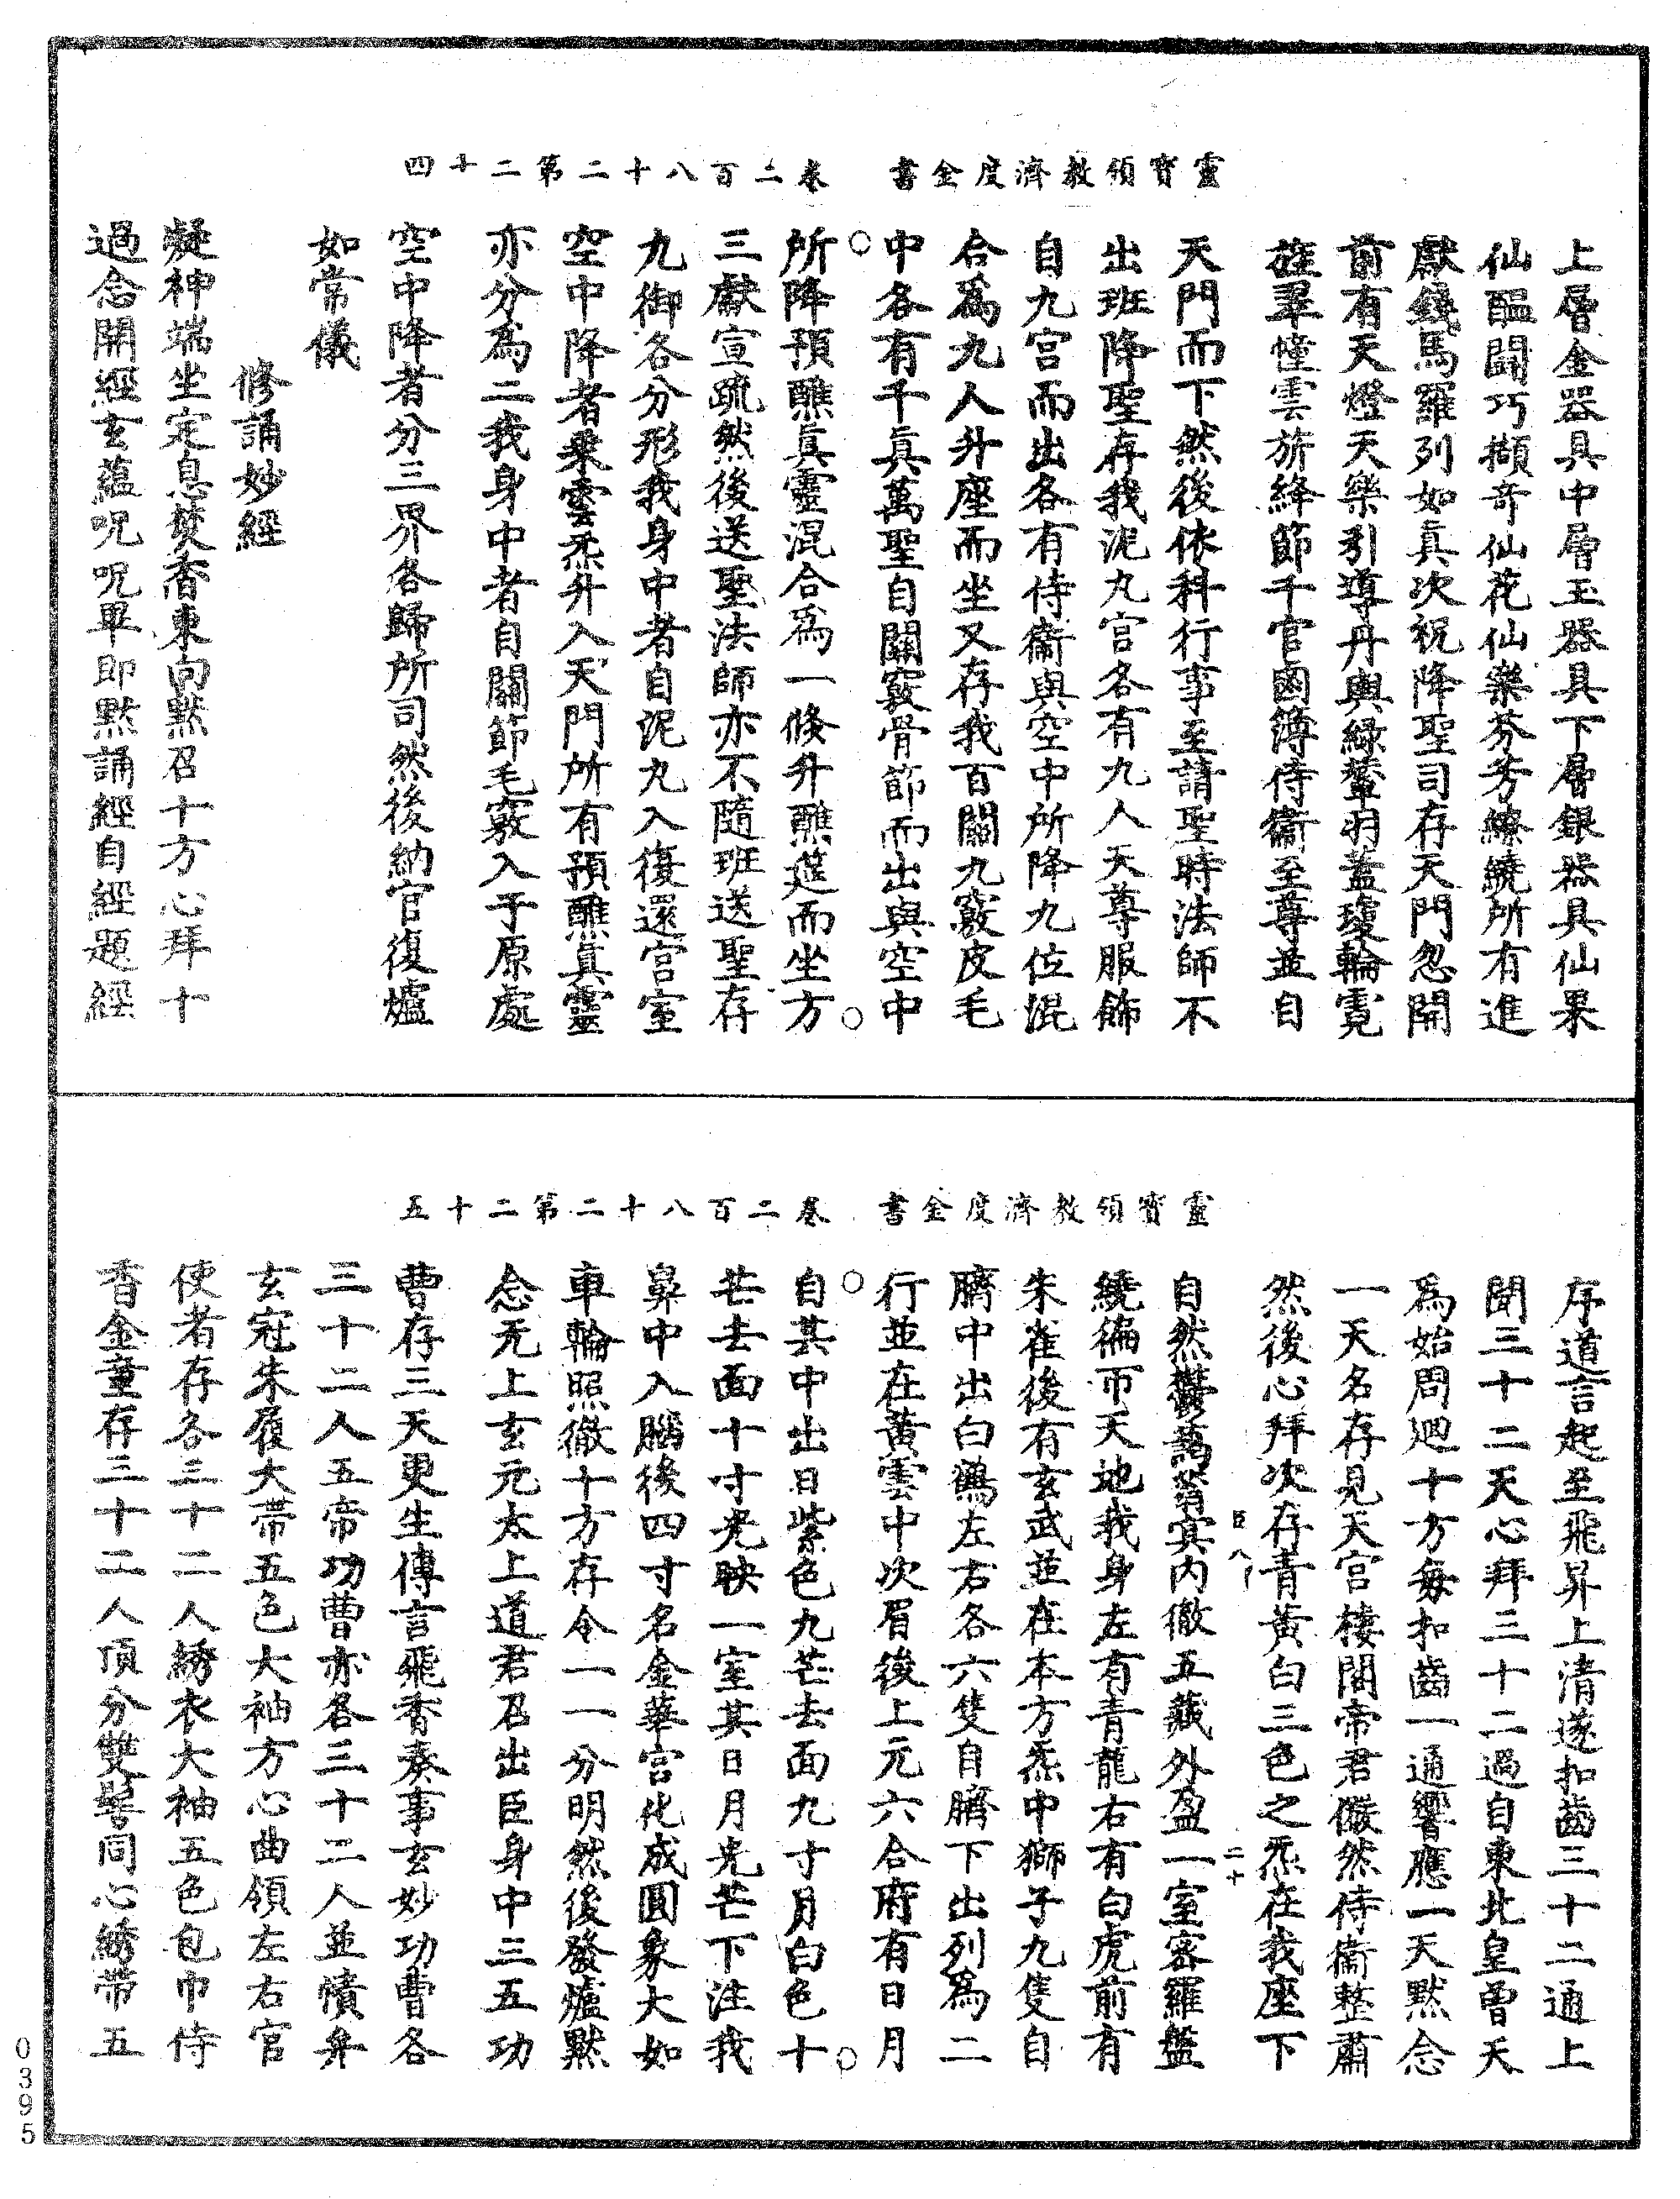 靈寶領教濟度金書　卷二百八十二第二十四
上層金器具中層玉器具下層銀器具仙果
仙醖鬪巧擷奇仙花仙樂芬芳繚繞所有進
獻錢馬羅列如真次祝降聖司存天門忽開
前有天燈天樂引導丹輿綠輦羽蓋瓊輪霓
旌翠幢雲旂絳節千官鹵簿侍衞至尊並自
天門而下然後依科行事至請聖時法師不
出班降聖存我泥丸宮各有九人天尊服飾
自九宮而出各有侍衞與空中所降九位混
合爲九人升座而坐又存我百關九竅皮毛
中各有千眞萬聖自關竅骨節而出與空中
所降預醮眞靈混合爲一條升醮筵而坐方
三獻宣疏然後送聖法師亦不隨班送聖存
九御各分形我身中者自泥丸入復還宮室
空中降者乘雲炁升入天門所有預醮眞靈
亦分爲二我身中者自關節毛竅入于原處
空中降者分三界各歸所司然後納官復爐
如常儀
修誦妙經
凝神端坐定息焚香東向默召十方心拜十
過念開經玄蘊呪呪畢即默誦經自經題經
靈寶領教濟度金書　卷二百八十二第二十五
序道言起至飛昇上清遂扣齒三十二通上
聞三十二天心拜三十二過自東北皇曾天
爲始周迴十方每扣齒一通響應一天默念
一天名存見天宮樓閣帝君儼然侍衞整肅
然後心拜次存青黃白三色之炁在我座下
自然鬱藹蓊宾内徹五藏外盈一室密羅盤
繞徧帀天地我身左有青龍右有白虎前有
朱雀後有玄武並在本方炁中獅子九隻自
臍中出白鶴左右各六隻自臍下出列爲二
行並在黃雲中次眉後上元六合府有日月
自其中出日紫色九芒去面九寸月白色十
芒去面十寸光映一室其日月光芒下注我
鼻中入腦後四寸名金華宮化成圓象大如
車輪照徹十方存令一一分明然後發爐默
念无上玄元太上道君召出臣身中三五功
曹存三天更生傳言飛香奏事玄妙功曹各
三十二人五帝功曹亦各三十二人並幘弁
玄冠朱履大帶五色大袖方心曲領左右官
使者存各三十二人綉衣大袖五色包巾侍
香金童存三十二人頂分雙髻同心綉帶五
臣八
二十
0395